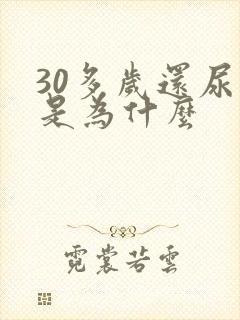 30多歲還尿
是為什麼
霓裳若雲